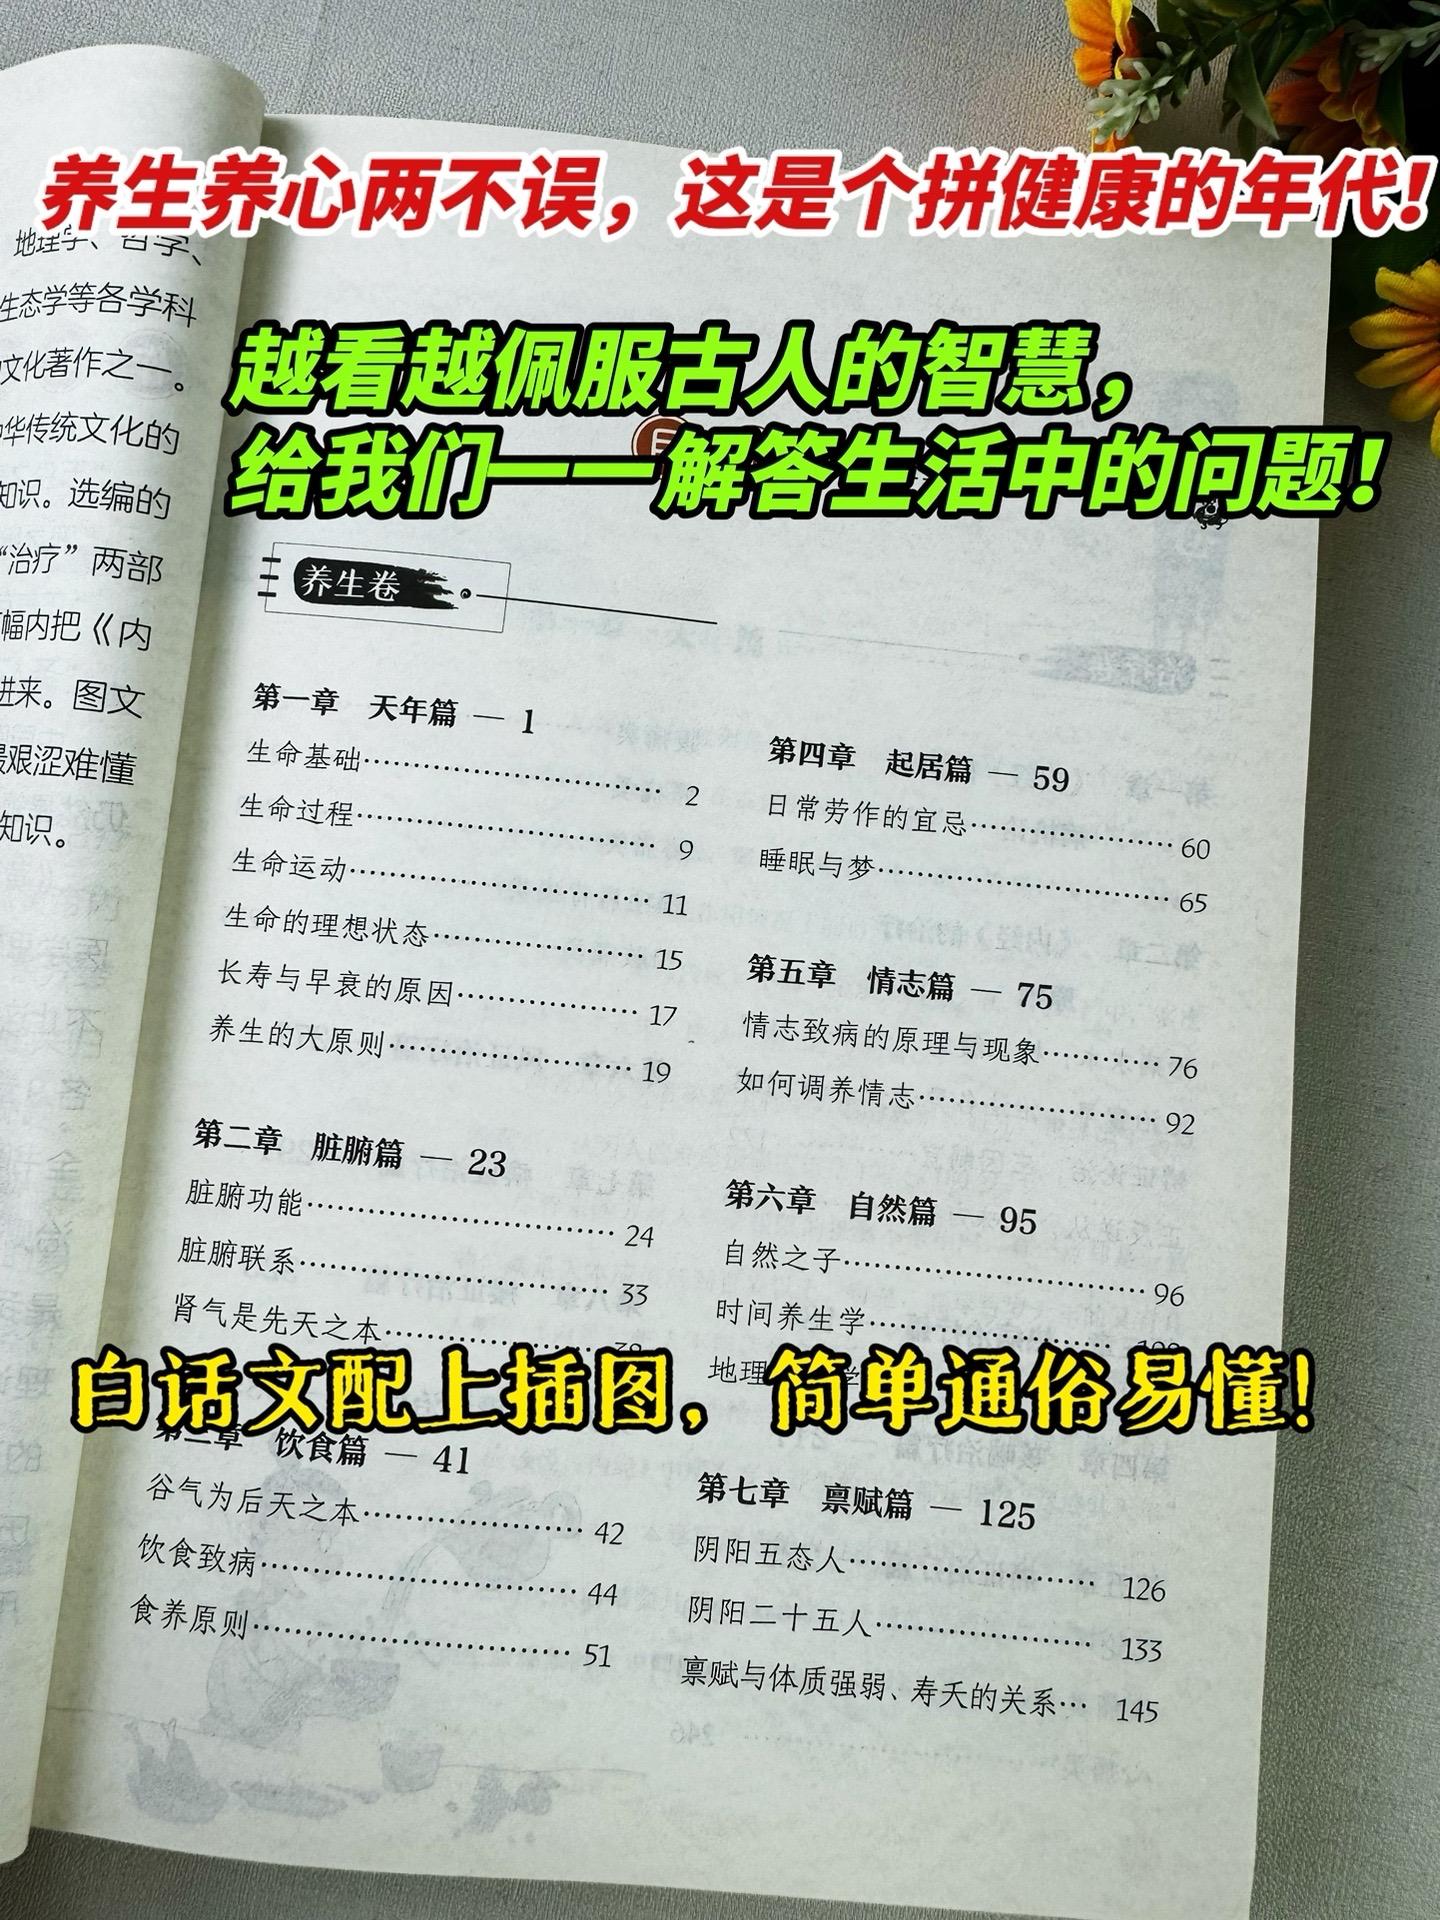 养生养心两不误，这是个拼健康的年代！
越看越佩服古人的智慧，
给我们一一解答生活中的问题！
地理学、哲学、
生态学等各学科
文化著作之一。
华传统文化的
知识。选编的
“治疗”两部
幅内把《内
进来。图文
艰涩难懂
知识。
养生卷
第一章 天年篇 — 1
生命基础…… 2
生命过程…… 9
生命运动…… 11
生命的理想状态…… 15
长寿与早衰的原因…… 17
养生的大原则…… 19
第二章 脏腑篇 — 23
脏腑功能…… 24
脏腑联系…… 33
肾气是先天之本……
饮食篇 — 41
谷气为后天之本…… 42
饮食致病…… 44
食养原则…… 51
第四章 起居篇 — 59
日常劳作的宜忌…… 60
睡眠与梦…… 65
第五章 情志篇 — 75
情志致病的原理与现象…… 76
如何调养情志…… 92
第六章 自然篇 — 95
自然之子…… 96
时间养生学……
地理
第七章 禀赋篇 — 125
阴阳五态人…… 126
阴阳二十五人…… 133
禀赋与体质强弱、寿夭的关系… 145
白话文配上插图，简单通俗易懂！